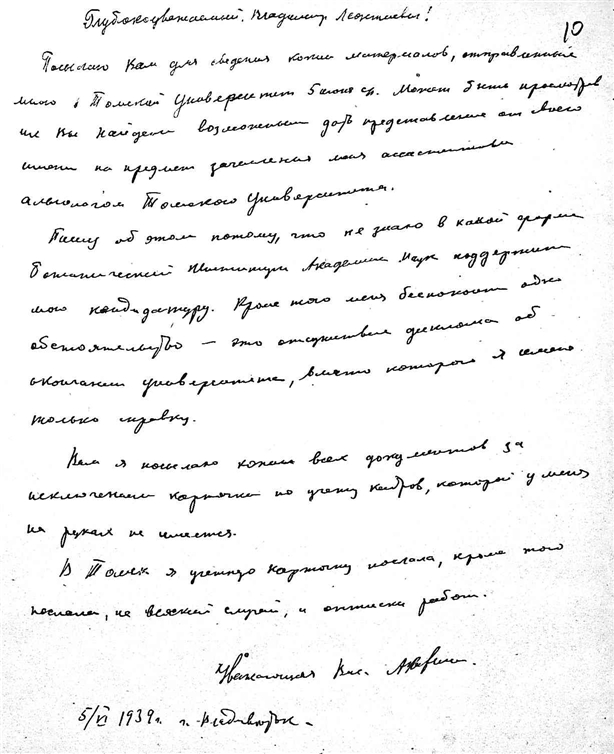 10
Глубокоуважаемый Владимир Леонтьевич!
Посылаю Вам для сведения копии материалов, отправленных
мною в Томский Университет 5 июня ср. Может быть просмотрев
их Вы найдете возможным дать представление от своего
имени на предмет зачисления меня ассистентом
альгологом Томского Университета.
Пишу об этом потому, что не знаю в какой форме
Ботанический Институт Академии Наук поддержит
мою кандидатуру. Кроме того меня беспокоит одно
обстоятельство — это отсутствие диплома об
окончании университета, вместо которого я имею
только справку.
Вам я посылаю копии всех документов за
исключением карточки по учету кадров, которой у меня
на руках не имеется.
В Томск я учетную карточку послала, кроме того
послала, на всякий случай, и оттиски работ.
Уважающая Вас
5/VI 1939 г. г. Владивосток.